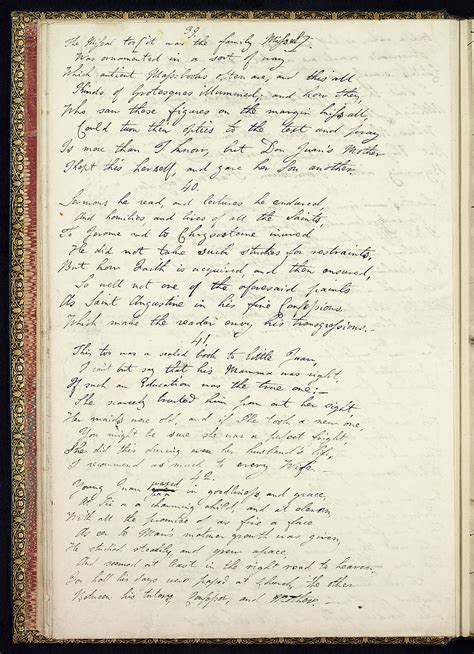 39.
The Missal too (it was the family Missal)
Was ornamented in a sort of way
Which antient Mass-books often are, and this all
Kinds of Grotesques illumined; and how they,
Who saw those figures on the margin kiss all,
Could turn their optics to the text and pray
Is more than I know, but Don Juan's Mother
Kept this herself, and gave her Son another
40.
Sermons he read, and lectures he endured,
And homilies and lives of all the Saints,
To Jerome and to Chrysostom inured
He did not take such studies for restraints,
But how Faith is acquired, and then ensured,
So well not one of the aforesaid paints
As Saint Augustine in his fine Confessions
Which make the reader envy his transgressions.—
41.
This too was a sealed book to little Juan,
I can't but say that his Mamma was right,
If such an Education was the true one:—
She scarcely trusted him from out her sight
Her maids were old, and if She took a new one,
You might be sure she was a perfect fright,
She did this during even her husband's life,
I recommend as much to every Wife.—
42.
Young Juan waxed in goodliness and grace,
At Six a charming child, and at eleven
With all the promise of as fine a face
As e'er to Man's maturer growth was given,
He studied steadily, and grew apace
And seemed at least in the right road to heaven,
For half his days were passed at Church, the other
Between his tutors, Confessor, and Mother.—